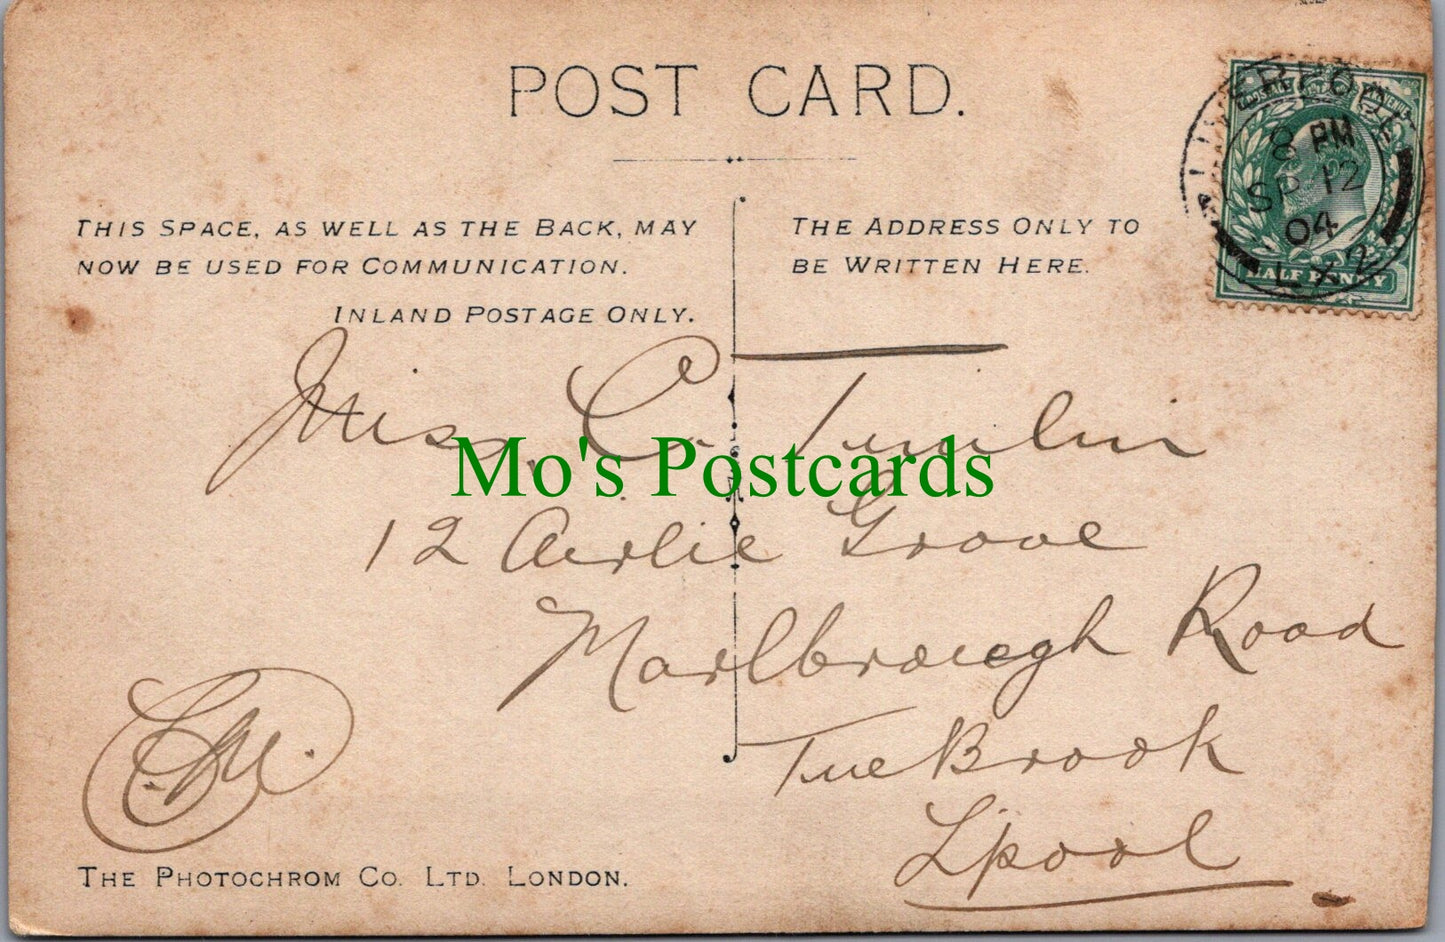 POST CARD.
THIS SPACE, AS WELL AS THE BACK, MAY
NOW BE USED FOR COMMUNICATION.
INLAND POSTAGE ONLY.
THE ADDRESS ONLY TO
BE WRITTEN HERE.
LIVERPOOL
8 PM
SP 12
04
LX2
HALF PENNY
Miss C. Tumlin
Mo's Postcards
12 Airlie Grove
Marlbrough Road
Tue Brook
L'pool
THE PHOTOCHROM CO. LTD. LONDON.